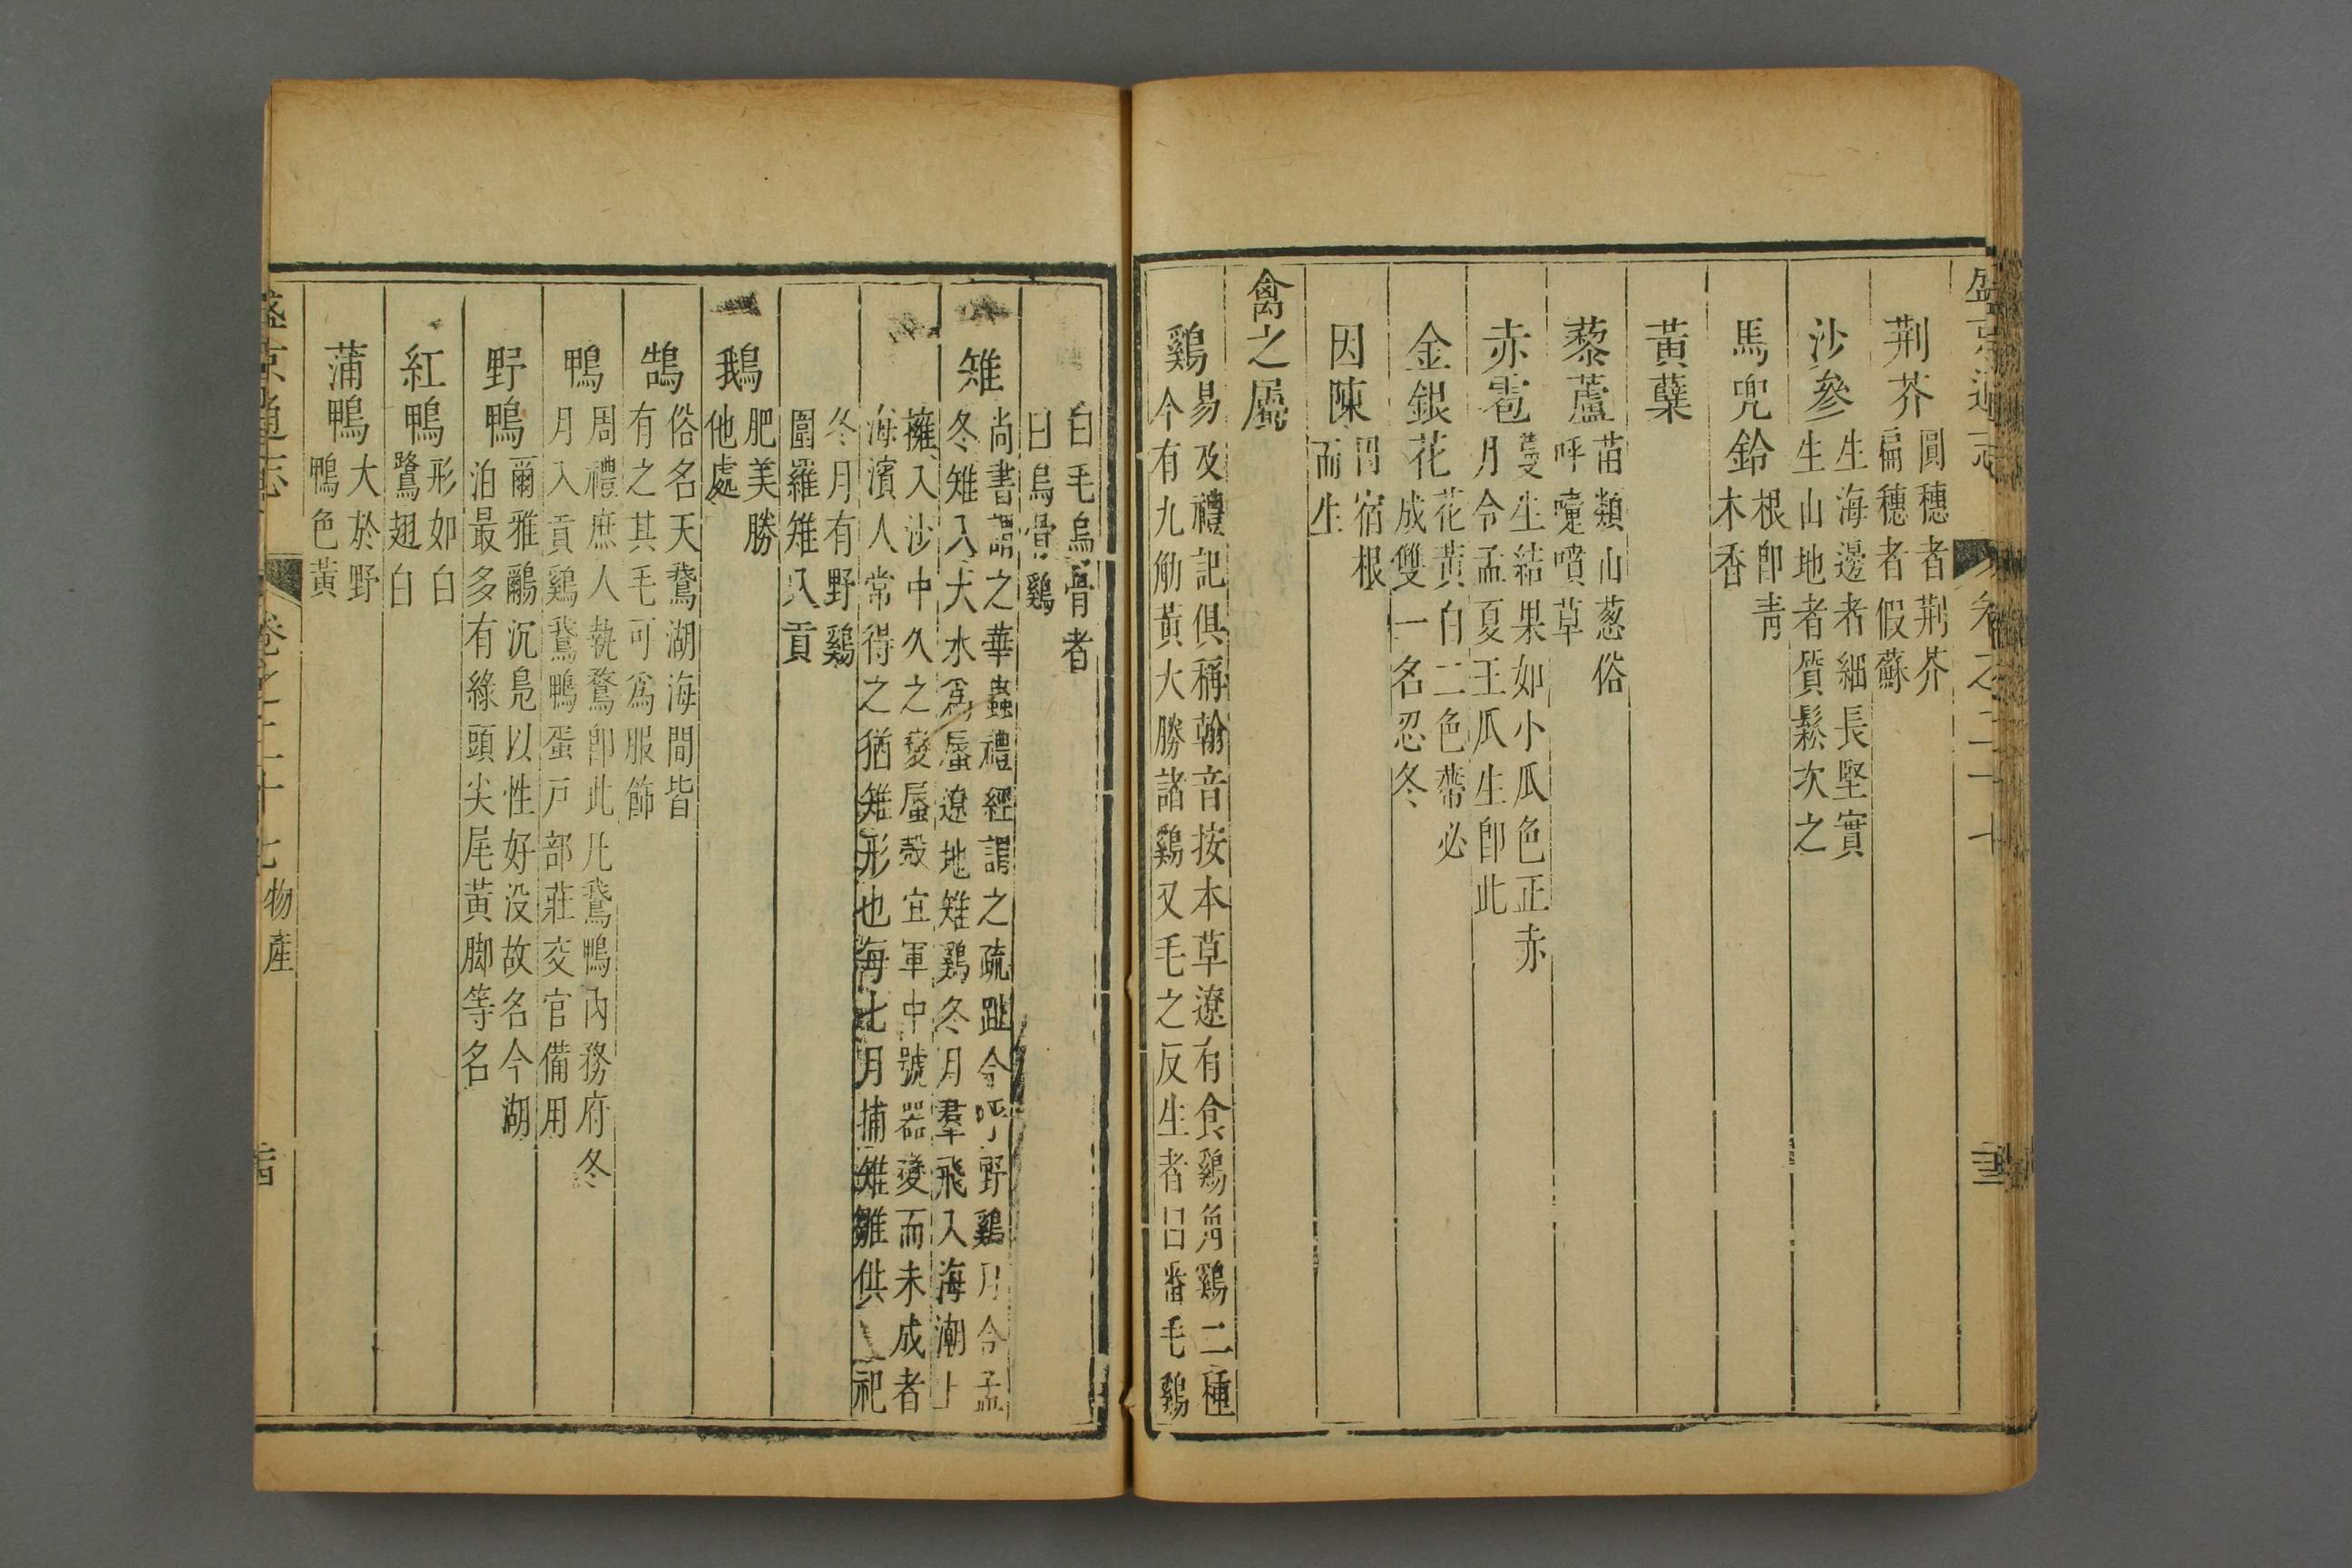 盛京通志 卷之二十七
荆芥 圓穗者荆芥
扁穗者假蘇
沙參 生海邊者細長堅實
生山地者質鬆次之
馬兜鈴 根卽靑
木香
黃蘗
藜蘆 苗類山葱俗
呼嚏噴草
赤雹 蔓生結果如小瓜色正赤
月令孟夏王瓜生卽此
金銀花 花黃白二色蔕必
成雙一名忍冬
因陳 因宿根
而生
禽之屬
鷄 易及禮記俱稱翰音按本草遼有食鷄角鷄二種
今有九觔黃大勝諸鷄又毛之反生者曰番毛鷄
白毛烏骨者
曰烏骨鷄
雉 尚書謂之華蟲禮經謂之疏趾今呼野鷄月令孟
冬雉入大水爲蜃遼地雉鷄冬月羣飛入海潮上
擁入沙中久之變蜃殼宜軍中號器變而未成者
海濱人常得之猶雉形也海七月捕雉雛供入祀
冬月有野鷄
圍羅雉入貢
鵝 肥美勝
他處
鵠 俗名天鵞湖海間皆
有之其毛可爲服飾
鴨 周禮庶人執鶩卽此凡鵞鴨內務府冬
月入貢鷄鵞鴨蛋戸部莊交官備用
野鴨 爾雅鸍沉鳧以性好没故名今湖
泊最多有綠頭尖尾黃脚等名
紅鴨 形如白
鷺翅白
蒲鴨 大於野
鴨色黃
盛京通志 卷之二十七 物產